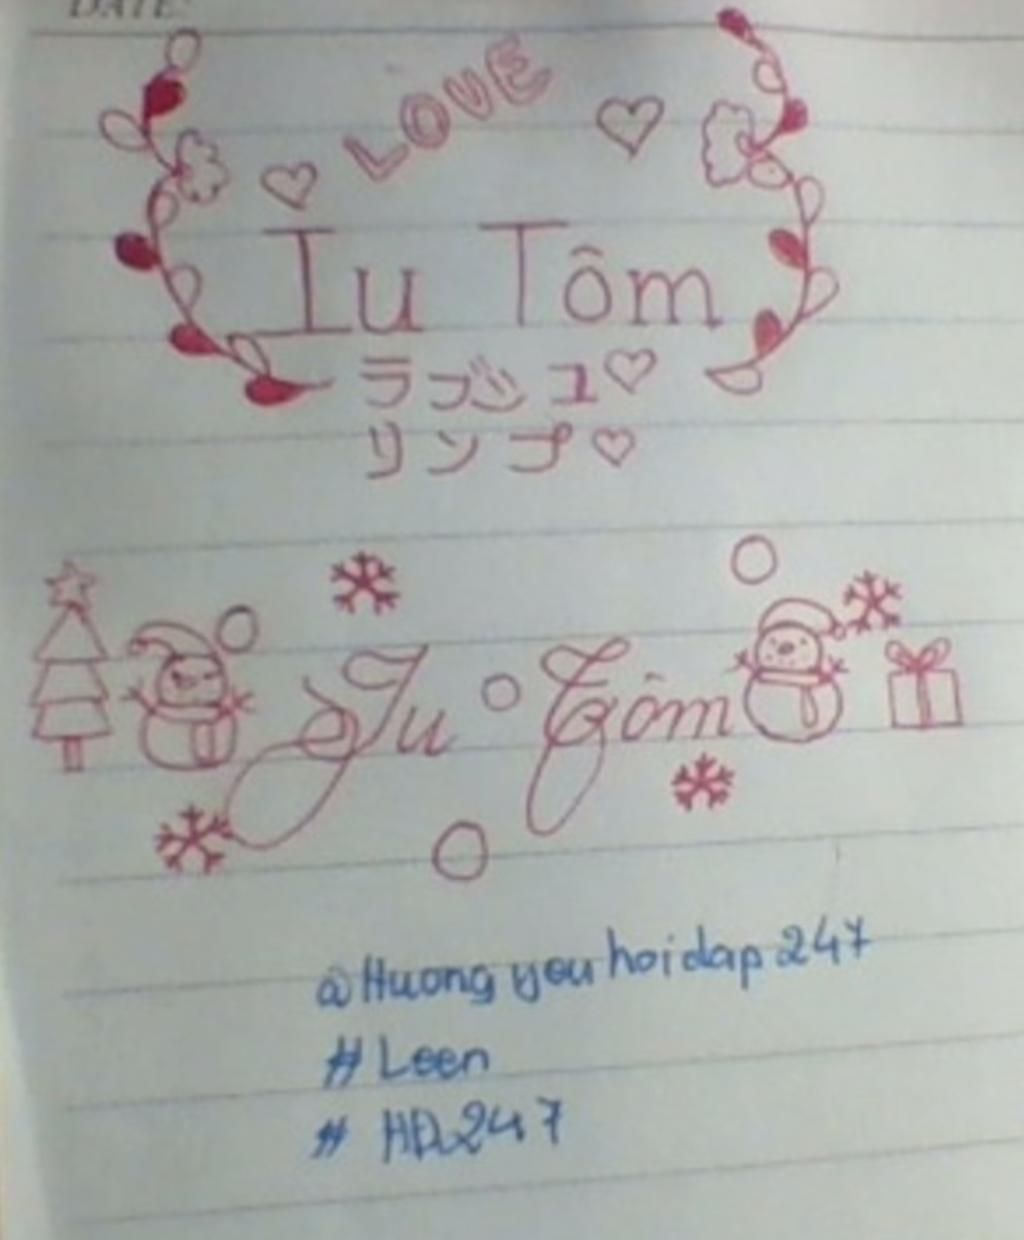 DATE:
LOVE
Iu Tôm
ラブリュ
リンプ
Iu Tôm
@Huongyouhoidap247
# Leen
# HD247